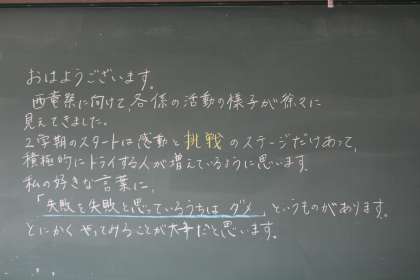 おはようございます。
西竜祭に向けて、各係の活動の様子が徐々に
見えてきました。
2学期のスタートは感動と挑戦のステージだけあって、
積極的にトライする人が増えているように思います。
私の好きな言葉に、
「失敗を失敗と思っているうちは ダメ」というものがあります。
とにかく やってみることが大事だと思います。